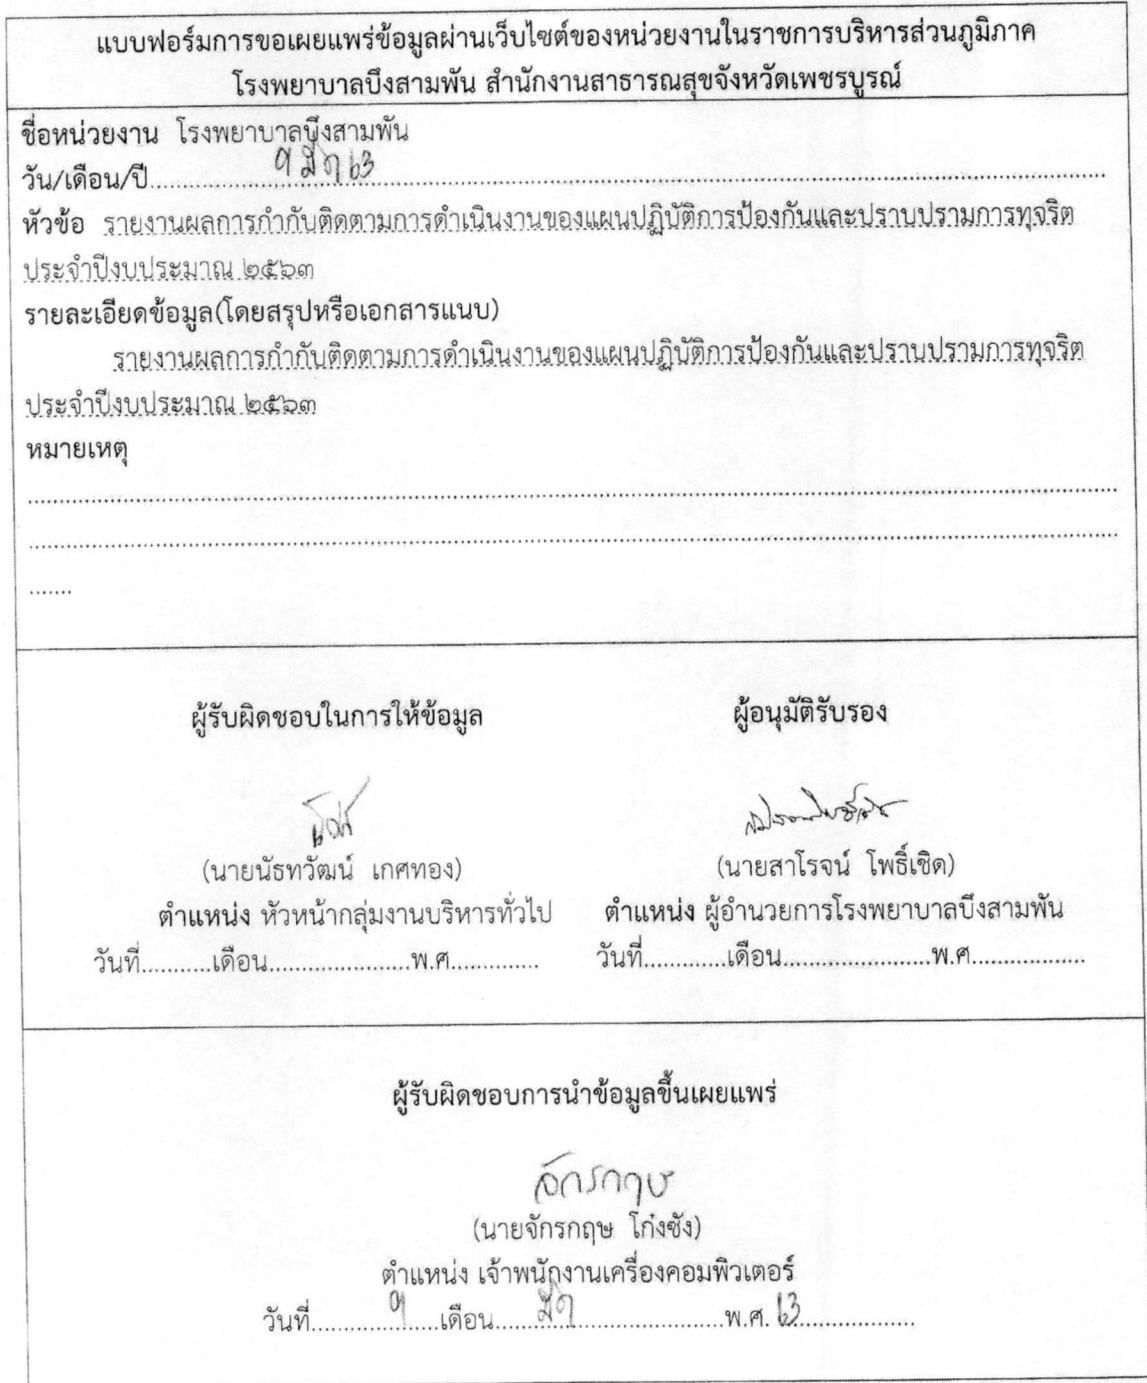 แบบฟอร์มการขอเผยแพร่ข้อมูลผ่านเว็บไซต์ของหน่วยงานในราชการบริหารส่วนภูมิภาค
โรงพยาบาลบึงสามพัน สำนักงานสาธารณสุขจังหวัดเพชรบูรณ์
ชื่อหน่วยงาน โรงพยาบาลบึงสามพัน
วัน/เดือน/ปี
หัวข้อ รายงานผลการกำกับติดตามการดำเนินงานของแผนปฏิบัติการป้องกันและปราบปรามการทุจริต
ประจำปีงบประมาณ ๒๕๖๓
รายละเอียดข้อมูล(โดยสรุปหรือเอกสารแนบ)
รายงานผลการกำกับติดตามการดำเนินงานของแผนปฏิบัติการป้องกันและปราบปรามการทุจริต
ประจำปีงบประมาณ ๒๕๖๓
หมายเหตุ
ผู้รับผิดชอบในการให้ข้อมูล ผู้อนุมัติรับรอง
(นายนัธทวัฒน์ เกศทอง) (นายสาโรจน์ โพธิ์เชิด)
ตำแหน่ง หัวหน้ากลุ่มงานบริหารทั่วไป ตำแหน่ง ผู้อำนวยการโรงพยาบาลบึงสามพัน
วันที่...........เดือน......................พ.ศ.............. วันที่.............เดือน.......................พ.ศ..................
ผู้รับผิดชอบการนำข้อมูลขึ้นเผยแพร่
จักรกฤษ
(นายจักรกฤษ โก๋งซัง)
ตำแหน่ง เจ้าพนักงานเครื่องคอมพิวเตอร์
วันที่ เดือน พ.ศ. 63